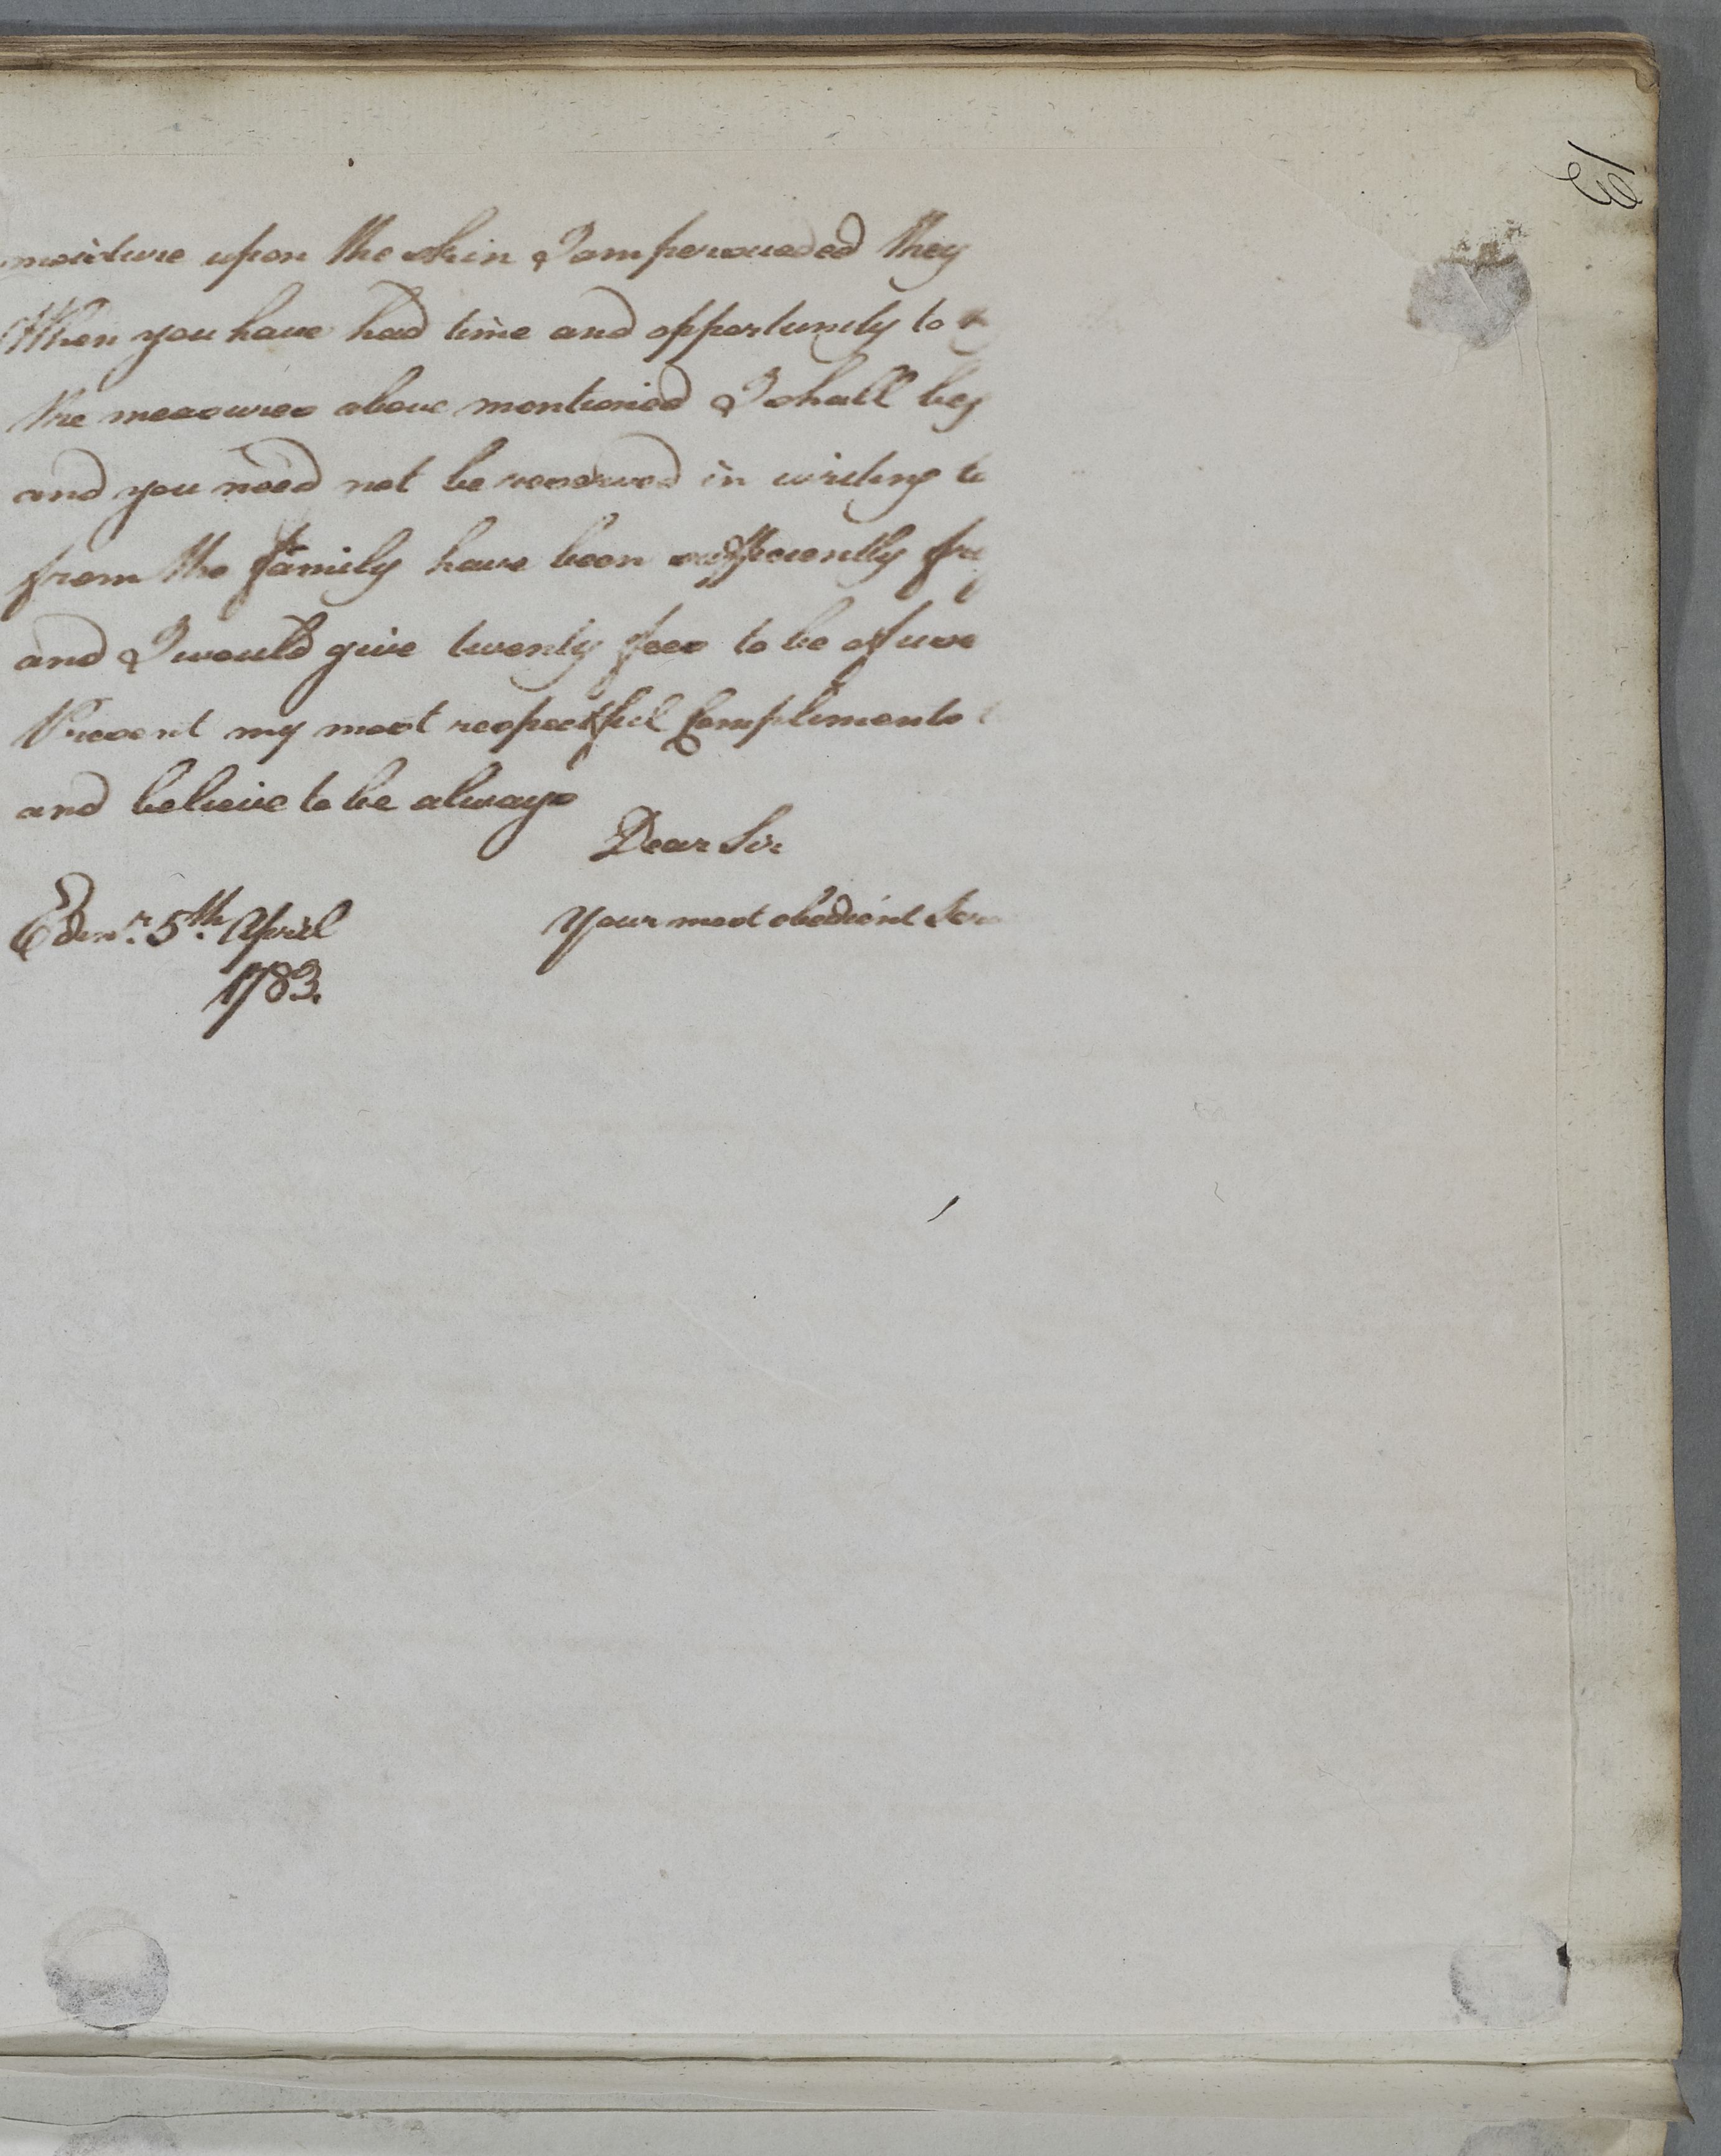 13
moisture upon the skin I am persuaded they
When you have had time and opportunity to
the measures above mentioned I shall beg
and you need not be reserved in writing to
from the family have been sufficiently
and I would give twenty fees to be of use
Present my most respectful Compliments
and believe to be always
Dear Sir
Your most obedient
Edinr. 5th. April
1783.